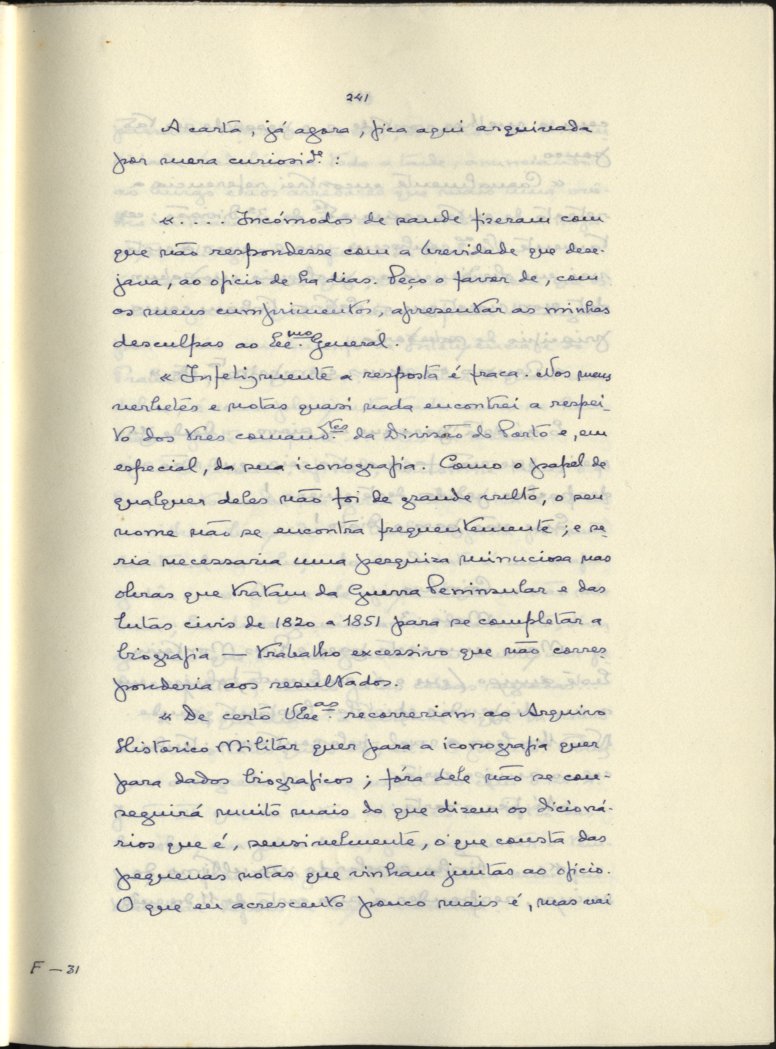 241
A carta, já agora, fica aqui arquivada
por mera curiosid.e :
«.... Incómodos de saude fizeram com
que não respondesse com a brevidade que dese-
java, ao oficio de ha dias. Peço o favor de, com
os meus cumprimentos, apresentar as minhas
desculpas ao Ex.mo General.
« Infelizmente a resposta é fraca. Nos meus
verbetes e notas quasi nada encontrei a respei-
to dos tres comand.tes da Divisão do Porto e, em
especial, da sua iconografia. Como o papel de
qualquer deles não foi de grande vulto, o seu
nome não se encontra frequentemente; e se-
ria necessaria uma pesquiza minuciosa nas
obras que tratam da Guerra Peninsular e das
lutas civis de 1820 a 1851 para se completar a
biografia — trabalho excessivo que não corres
ponderia aos resultados.
« De certo VEx.as recorreriam ao Arquivo
Historico Militar quer para a iconografia quer
para dados biograficos; fóra dele não se con-
seguirá muito mais do que dizem os dicioná-
rios que é, sensivelmente, o que consta das
pequenas notas que vinham juntas ao oficio.
O que eu acrescento pouco mais é, mas vai
F — 31